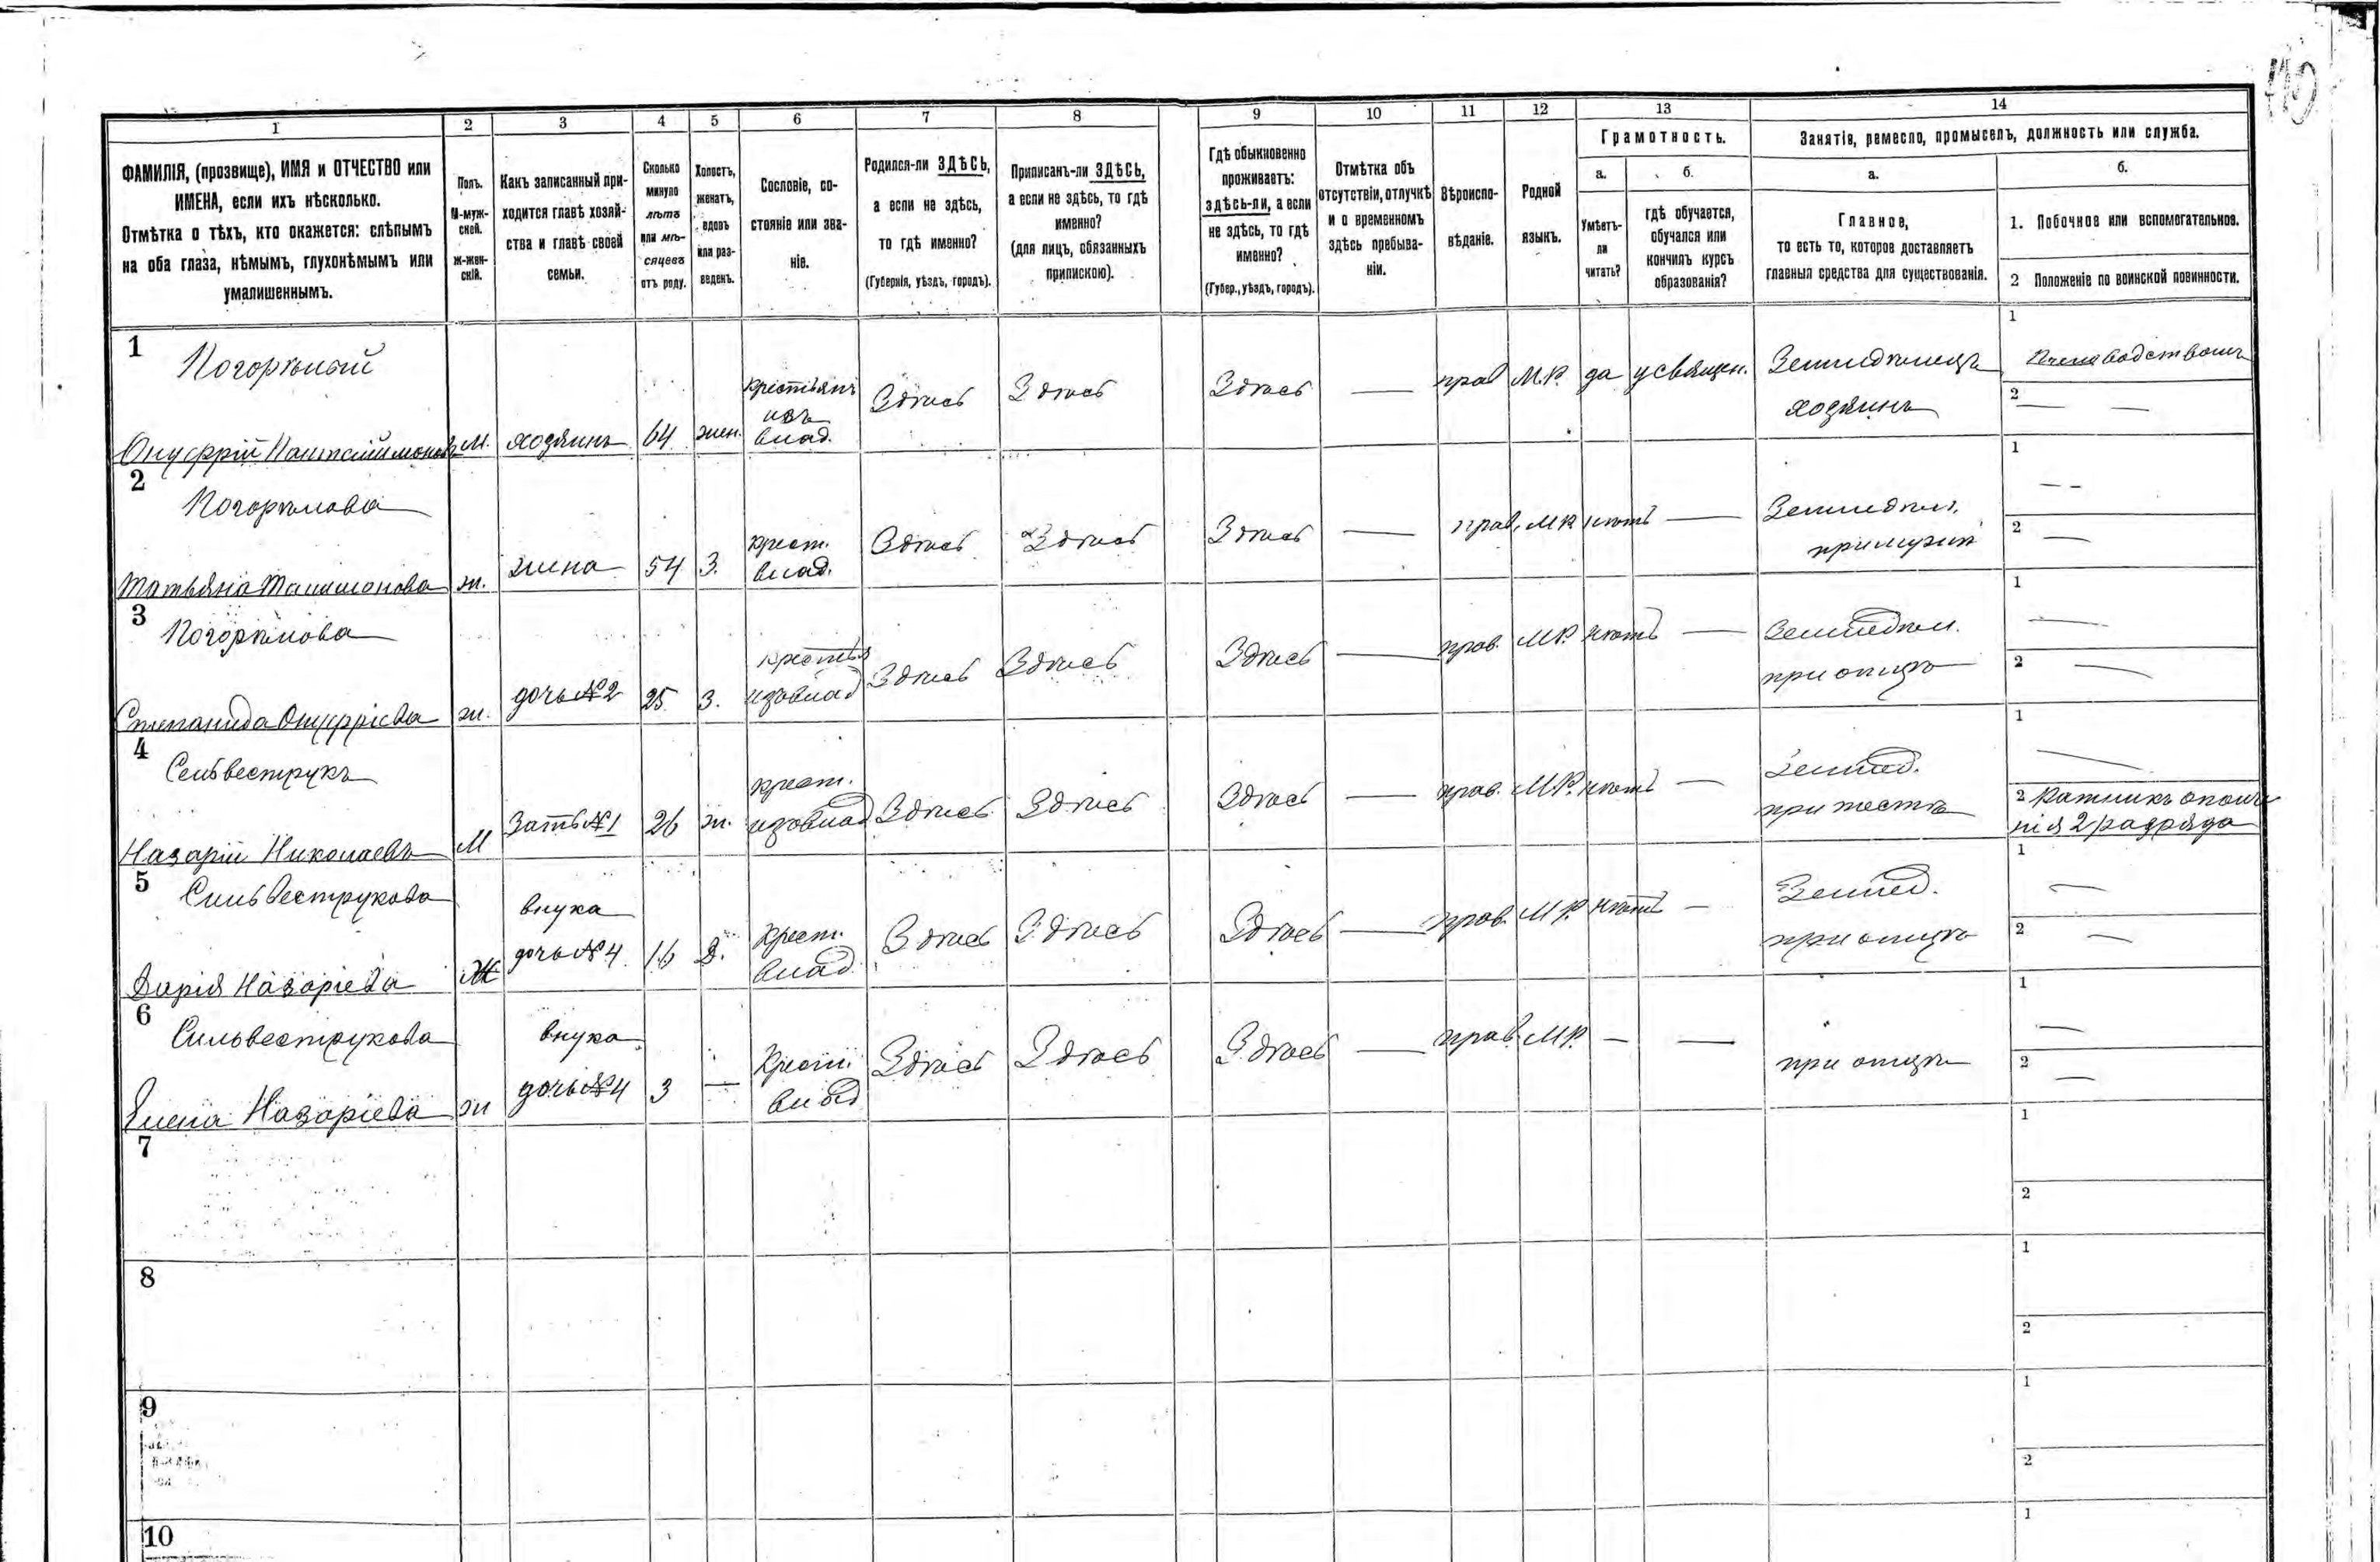 1
2
3
4
5
6
7
8
9
10
11
12
13
14
ФАМИЛІЯ, (прозвище), ИМЯ и ОТЧЕСТВО или
ИМЕНА, если ихъ нѣсколько.
Отмѣтка о тѣхъ, кто окажется: слѣпымъ
на оба глаза, нѣмымъ, глухонѣмымъ или
умалишеннымъ.
Полъ.
М-муж-
ской.
Ж-жен-
скій.
Какъ записанный при-
ходится главѣ хозяй-
ства и главѣ своей
семьи.
Сколько
минуло
лѣтъ
или мѣ-
сяцевъ
отъ роду.
Холостъ,
женатъ,
вдовъ
или раз-
веденъ.
Сословіе, со-
стояніе или зва-
ніе.
Родился-ли ЗДѢСЬ,
а если не здѣсь,
то гдѣ именно?
(Губернія, уѣздъ, городъ).
Приписанъ-ли ЗДѢСЬ,
а если не здѣсь, то гдѣ
именно?
(для лицъ, обязанныхъ
припискою).
Гдѣ обыкновенно
проживаетъ:
здѣсь-ли, а если
не здѣсь, то гдѣ
именно?
(Губер., уѣздъ, городъ).
Отмѣтка объ
отсутствіи, отлучкѣ
и о временномъ
здѣсь пребыва-
ніи.
Вѣроиспо-
вѣданіе.
Родной
языкъ.
Грамотность.
а.
Умѣетъ-
ли
читать?
б.
гдѣ обучается,
обучался или
кончилъ курсъ
образованія?
Занятія, ремесло, промыселъ, должность или служба.
а.
Главное,
то есть то, которое доставляетъ
главныя средства для существованія.
б.
1. Побочное или вспомогательное.
2 Положеніе по воинской повинности.
1
Погорѣлый
Онуфрій Пантелеймоновъ
М.
хозяинъ
64
жен.
крестьян
изъ
влад.
Здѣсь
Здѣсь
Здѣсь
—
прав
М.Р.
да
у священ.
Земледѣлецъ
хозяинъ
1
Пчеловодствомъ
2
— —
2
Погорѣлова
Татьяна
ж.
жена
54
З.
крест.
влад.
Здѣсь
Здѣсь
Здѣсь
—
прав.
МР
нѣтъ
—
Земледѣл.
при мужѣ
1
— –
2
—
3
Погорѣлова
Степанида Онуфріева
ж.
дочь №2
25
З.
крестья
изъ влад
Здѣсь
Здѣсь
Здѣсь
—
прав.
МР.
нѣтъ
—
Земледѣл.
при отцѣ
1
—
2
—
4
Сельвеструкъ
Назарій Николаевъ
М
Зять №1
26
ж.
крест.
изъ влад
Здѣсь
Здѣсь
Здѣсь
—
прав.
М.Р.
нѣтъ
—
Землед.
при тестѣ
1
—
2 Ратникъ ополче
нія 2 разряда
5
Сильвеструкова
Дарія Назаріева
Ж
внука
дочь №4
16
Д.
Крест.
влад.
Здѣсь
Здѣсь
Здѣсь
—
прав.
МР.
нѣтъ
—
Землед.
при отцѣ
1
—
2
—
6
Сильвеструкова
Елена Назаріева
ж
внука
дочь №4
3
—
Крест.
влад
Здѣсь
Здѣсь
Здѣсь
—
прав.
МР.
—
—
при отцѣ
1
—
2
—
7
1
2
8
1
2
9
1
2
10
1